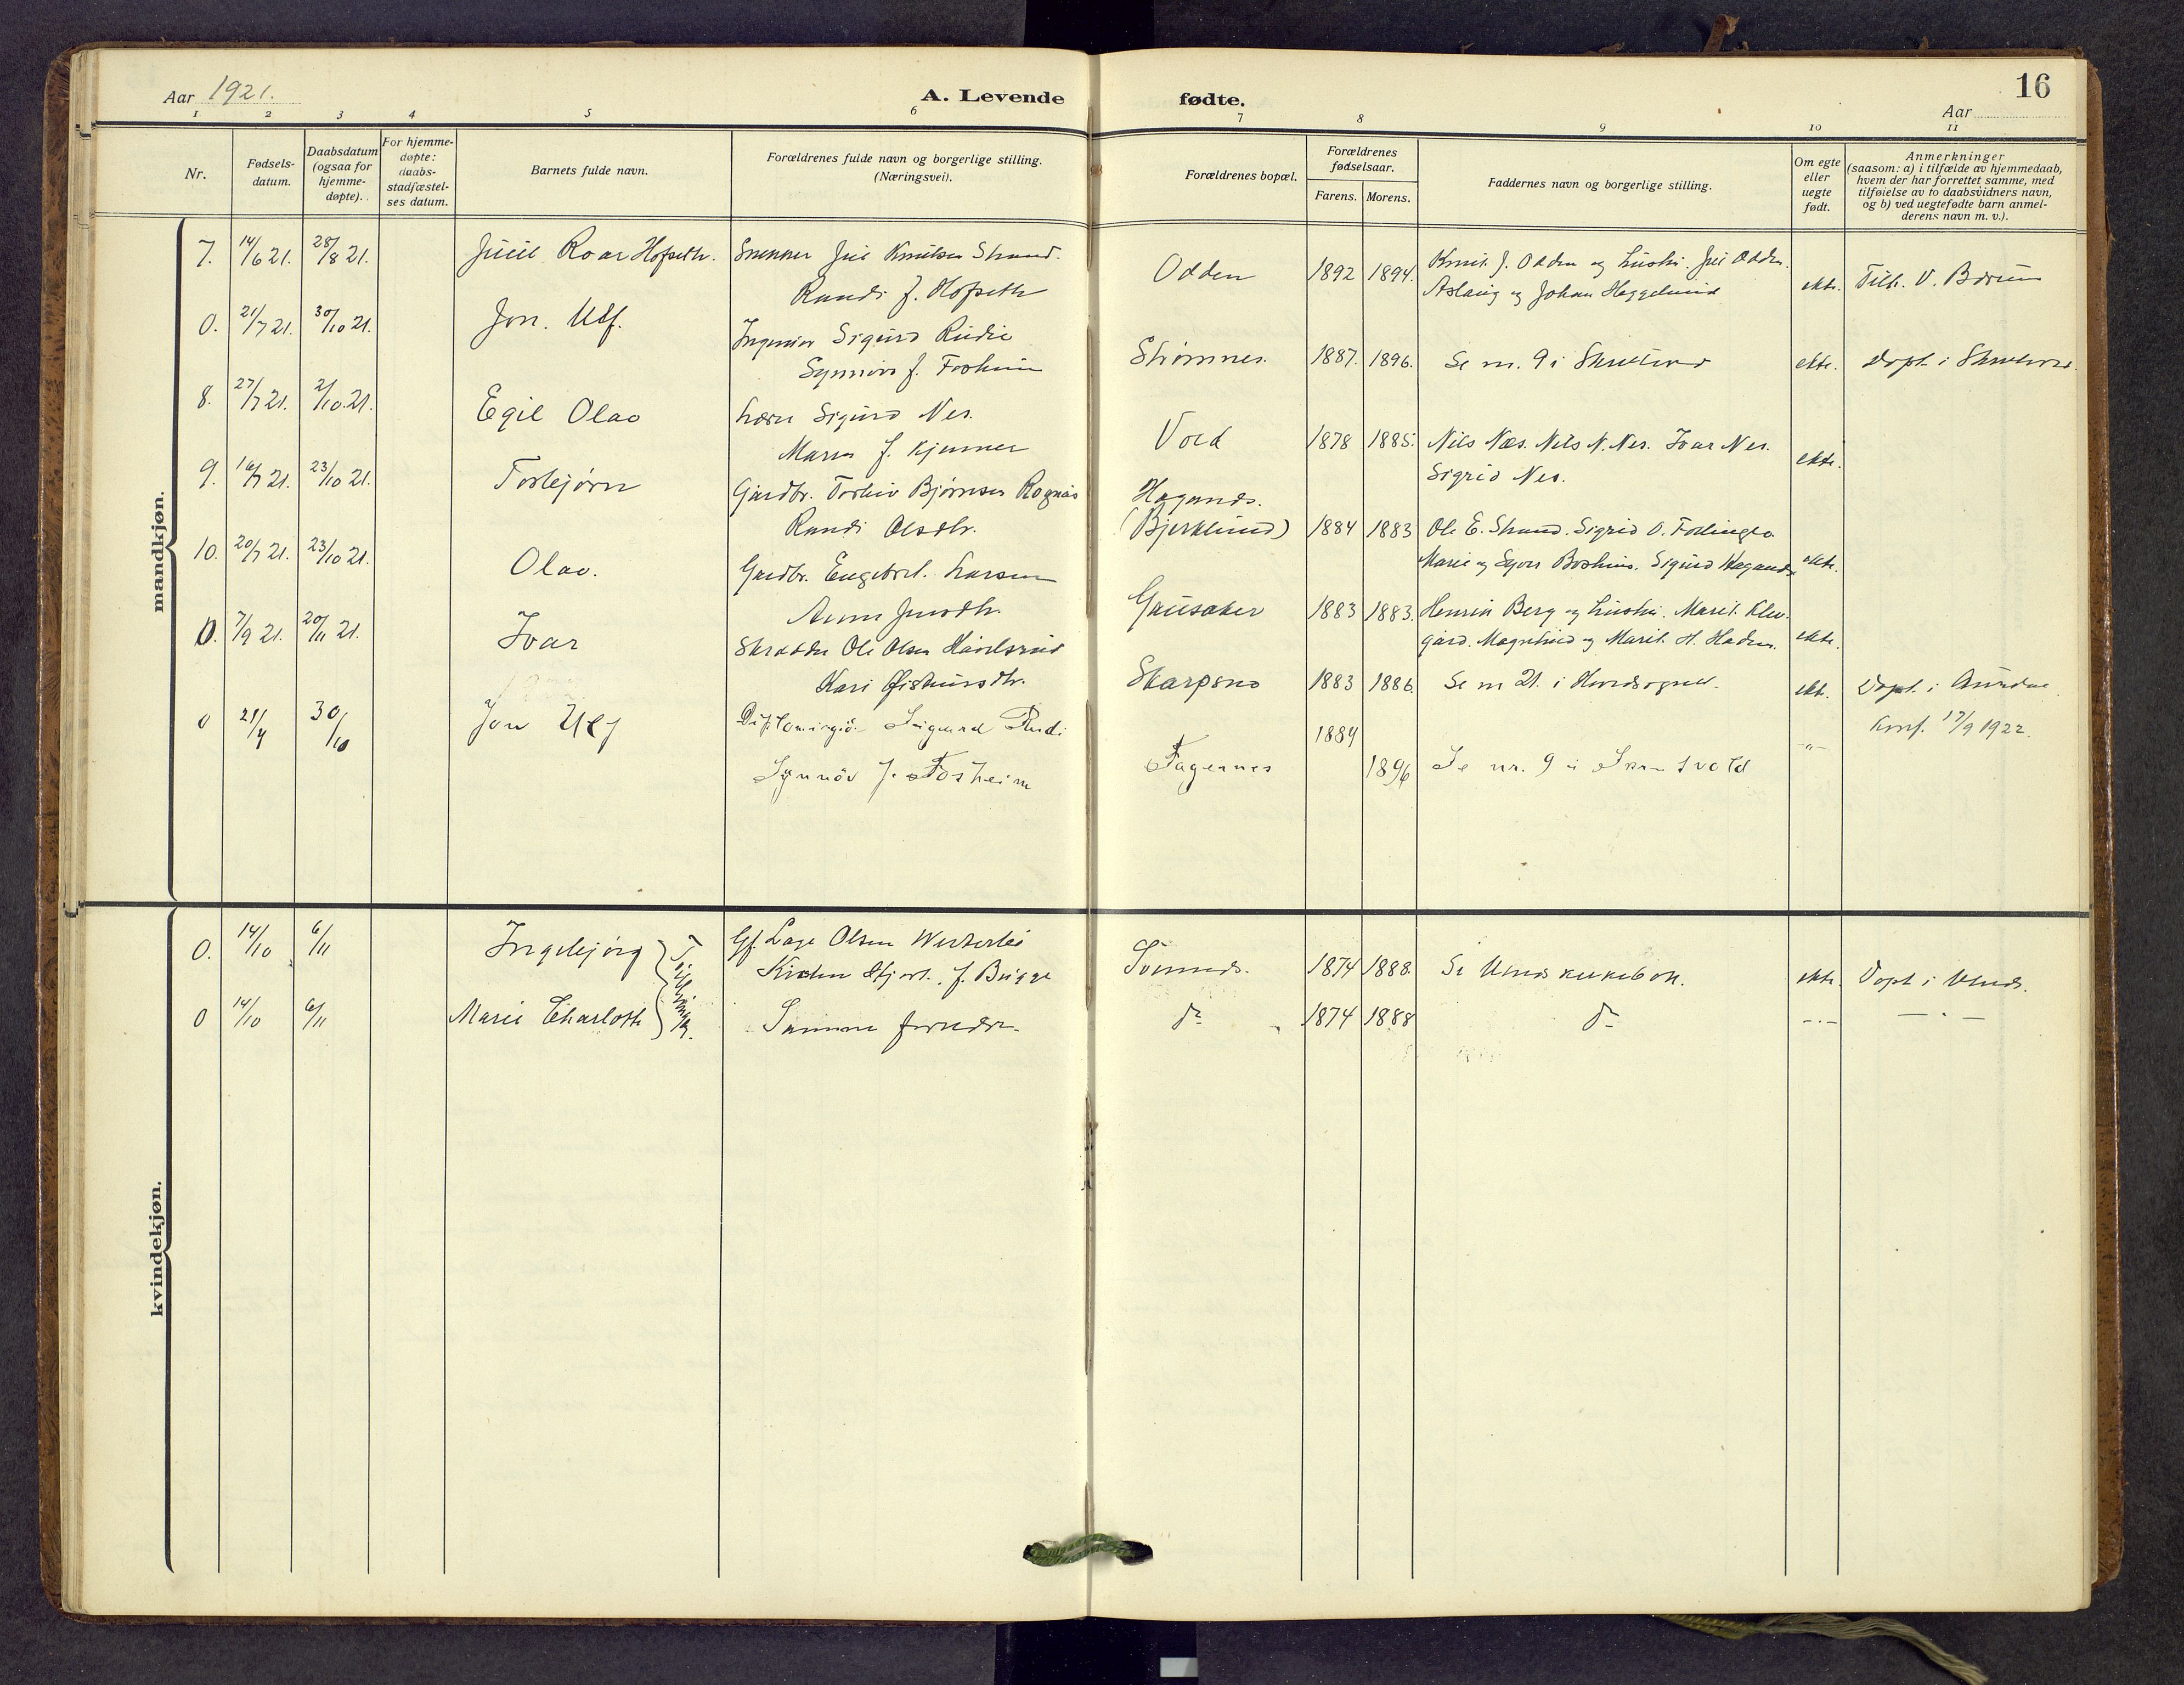 Aar 1921.
A. Levende fødte.
16
Aar
1 2 3 4 5 6 7 8 9 10 11
Nr.
Fødselsdatum.
Daabsdatum (ogsaa for hjemmedøpte).
For hjemmedøpte: daabsstadfæstelses datum.
Barnets fulde navn.
Forældrenes fulde navn og borgerlige stilling.
(Næringsvei).
Forældrenes bopæl.
Forældrenes fødselsaar.
Farens. Morens.
Faddernes navn og borgerlige stilling.
Om egte eller uegte født.
Anmerkninger
(saasom: a) i tilfælde av hjemmedaab,
hvem der har forrettet samme, med
tilføielse av to daabsvidners navn,
og b) ved uegtefødte barn anmelderens navn m. v.).
mandkjøn.
7. 14/6 21. 28/8 21. Roar Hofseth. Snekker Knutsen Strand. Odden 1892 1894. Knut J. Odden og hustru. Odden. ekte. Tilh. V. Bærum
Randi f. Hofseth Aslaug og Johan Heggelund
0. 21/7 21. 30/10 21. Jon. Ulf. Ingeniør Sigurd Rudie Strømnes. 1887. 1896. Se nr. 9 i Skrutvold ekte. Døpt i Skrutvold.
Synnøve f. Fosheim
8. 27/7 21. 2/10 21. Egil Olav Lærer Sigurd Nes. Vold 1878 1885. Nils Næs. Nils N. Nes. Ivar Nes. ekte.
f. Kjenner Sigrid Nes.
9. 23/10 21. Torbjørn Gardbr. Torleiv Bjørnsen Rognås Haganes.
Randi Olsdtr. (Bjørklund) 1884 1883 Ole E. Strand. Sigrid O.
Marie og Boshus. Sigurd Haganes. ekte.
10. 20/7 21. 23/10 21. Olav. Gardbr. Engebret Larsen Gausaker 1883 1883. Henrik Berg og hustru. Marit Klevgård. Magnhild og Marit H. Haden. ekte.
Anne
0. 7/9 21. 20/11 21. Ivar Skrædder Ole Olsen Håvelsrud Skarpsno 1883 1886. Se nr 21. i Hovedsognet. ekte. Døpt i Aurdal.
Kari Øisteinsdtr. Konf. 17/9 1922.
0 30/10 Jon Ulf Diplomingiø. Sigurd Rudi 1884
Synnöv f. Fosheim Fagernes 1896 Se nr. 9 i Skrutvold -"-
kvindekjøn.
0. 14/10 6/11 Ingebjørg Gf. Lage Olsen Westerlei 1874 1888. Se Ulnes kirkebok. ekte. Døpt i Ulnes.
Kirsten Hjort. f. Bugge
Tvillinger.
0 14/10 6/11 Marie Charlotte Samme forældre. do 1874 1888 do -·- -·-